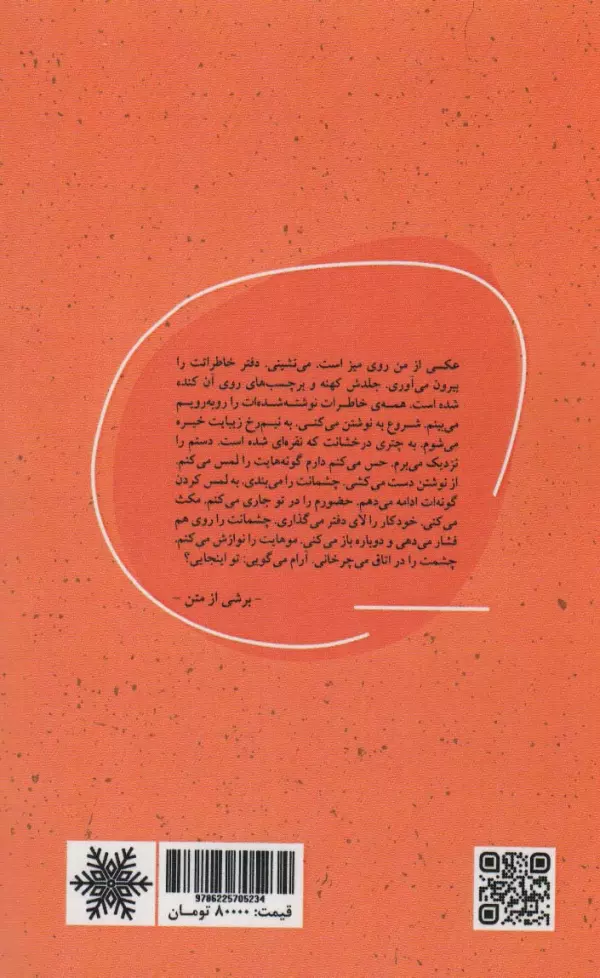 عکسی از من روی میز است. می‌نشینی. دفتر خاطراتت را
بیرون می‌آوری. جلدش کهنه و برچسب‌های روی آن کنده
شده است. همه‌ی خاطرات نوشته‌شده‌ات را روبه‌رویم
می‌بینم. شروع به نوشتن می‌کنی. به نیم‌رخ زیبایت خیره
می‌شوم. به چتری درخشانت که نقره‌ای شده است. دستم را
نزدیک می‌برم. حس می‌کنم دارم گونه‌هایت را لمس می‌کنم.
از نوشتن دست می‌کشی. چشمانت را می‌بندی. به لمس کردن
گونه‌ات ادامه می‌دهم. حضورم را در تو جاری می‌کنم. مکث
می‌کنی. خودکار را لای دفتر می‌گذاری. چشمانت را روی هم
فشار می‌دهی و دوباره باز می‌کنی. موهایت را نوازش می‌کنم.
چشمت را در اتاق می‌چرخانی. آرام می‌گویی: تو اینجایی؟
- برشی از متن -
9786225705234
قیمت: ۸۰۰۰۰ تومان